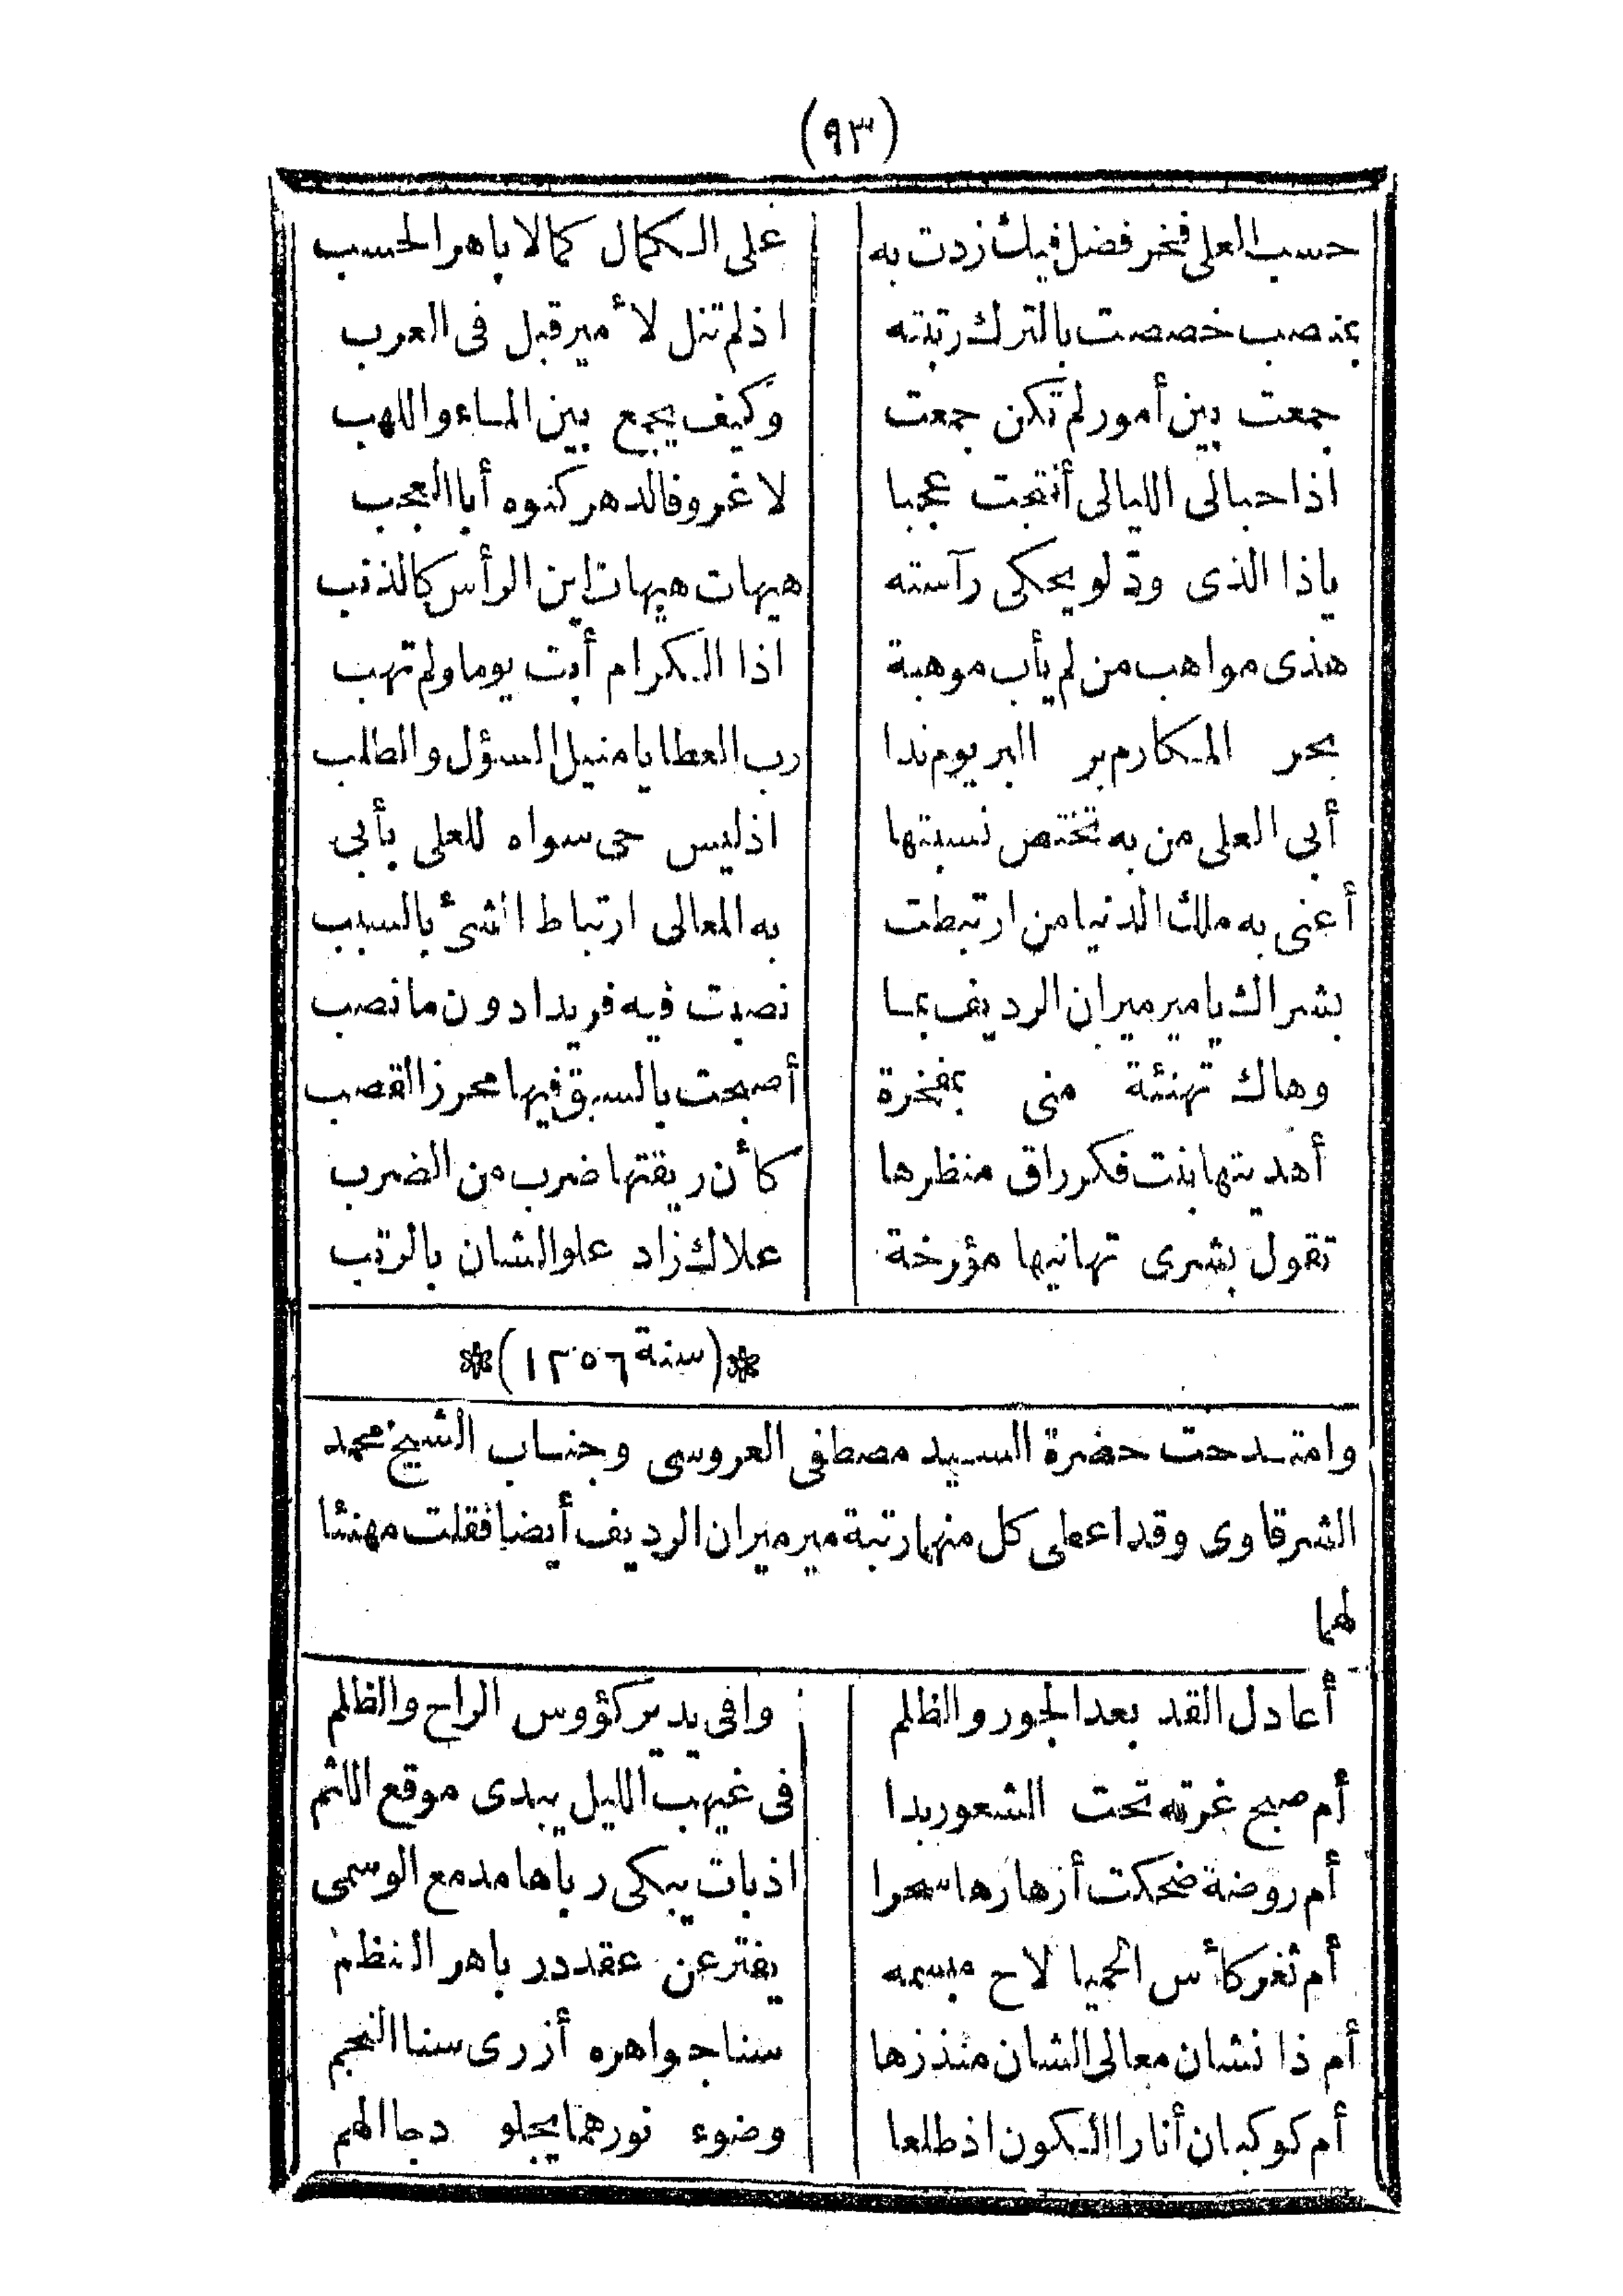 (٩٣)
حسب العلى فخر فضل فيك زدت به على الكمال كمالا باهر الحسب
بمنصب خصصت بالترك رتبته اذ لم تنل لأمير قبل فى العرب
جمعت بين أمور لم تكن جمعت وكيف يجمع بين الماء واللهب
اذا حبالى الليالى أنتجت عجبا لا غرو فالدهر كنوه أبا العجب
ياذا الذى ودّ لو يحكى رآسته هيهات هيهات اين الرأس كالذنب
هذى مواهب من لم يأب موهبة اذا الكرام أبت يوما ولم تهب
بحر المكارم بر البر يوم ندا رب العطايا منيل السؤل والطلب
أبى العلى من به تختص نسبتها اذ ليس حى سواه للعلى بأبى
أعنى به ملك الدنيا من ارتبطت به المعالى ارتباط الشئ بالسبب
بشراك يا ميرميران الرديف بما نصبت فيه فريدا دون ما نصب
وهاك تهنئة منى بمفخرة أصبحت بالسبق فيها محرز القصب
أهديتها بنت فكر راق منظرها كأن ريقتها ضرب من الضرب
تقول بشرى تهانيها مؤرخة علاك زاد علو الشان بالرتب
*(سنة ١٢٥٦)*
وامتدحت حضرة السيد مصطفى العروسى وجناب الشيخ محمد
الشرقاوى وقد اعطى كل منهما رتبة ميرميران الرديف أيضا فقلت مهنئا
لهما
أعادل القد بعد الجور والظلم وافى يدير كؤوس الراح والظلم
أم صبح غرته تحت الشعور بدا فى غيهب الليل يبدى موقع اللثم
أم روضة ضحكت أزهارها سحرا اذ بات يبكى رباها مدمع الوسمى
أم ثغر كأس الحميا لاح مبسمه يفتر عن عقد در باهر النظم
أم ذا نشان معالى الشان منذ زها سنا جواهره أزرى سنا النجم
أم كوكبان أنارا الكون اذ طلعا وضوء نورهما يجلو دجا الهم